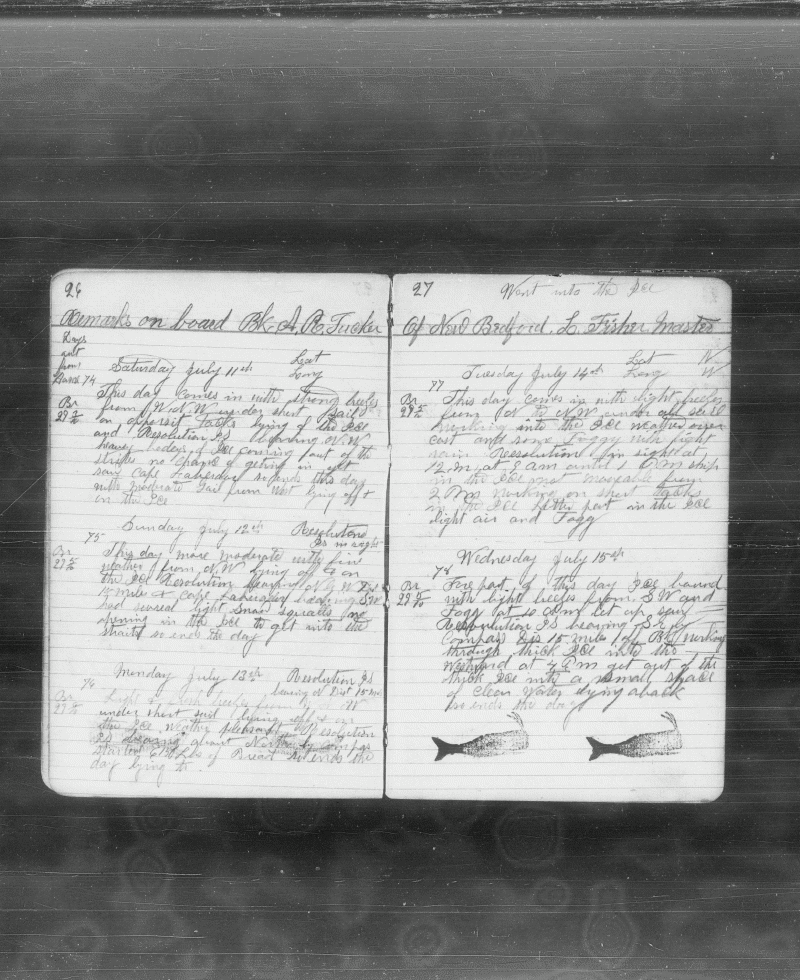 26
Remarks on board Bk. A. R. Tucker
Days
out
from
74
Saturday July 11th
Lat
Long
Br
29
This day comes in with strong breeze
from W.N.W. under short sail
on opposit tacks lying of the ICE
and Resolution IS bearing N.W
heavy body of ICE coming out of the
straits no chance of geting in yet
saw Cape so ends this day
with moderate Gail from West lying off &
on the ICE
75
Sunday July 12th
Resolution
IS in sight
Br
29
This day more moderate with fine
weather from N.W lying off & on
the ICE Resolution bearing N.b.W Dist
15 mile & Cape bearing
had several light Snow squalls no
opening in the ICE to get into the
straits so ends the day
76
Monday July 13th
Resolution IS
bearing N Dist 15 mile
Br
Light & fresh breeze from W
under short sail lying off & on
the ICE weather pleasant Resolution
IS bearing about North by compas
started of Bread So ends the
day lying to.
27
Went into the ICE
Of New Bedford. L. Fisher Master
77
Tuesday July 14th
Lat N
Long W
Br
29
This day comes in with light breeze
from N to N.W. under all sail
working into the ICE weather over
cast and some Foggy with light
rain Resolution in sight at
12.m, at 8 am until 1 P.M ship
in the ICE not moveable from
2 P.m working on short tacks
in the ICE latter part in the ICE
light air and Fogg
78
Wednesday July 15th
Br
29
Fore part of this day ICE bound
with light breeze from S W and
Fogg at 10 am let up saw
Resolution IS bearing
Compas Dis 15 mile Bk working
through thick ICE into the
Westward at 4 P.m get out of the
thick ICE into a small space
of Clear Water lying aback
so ends the day